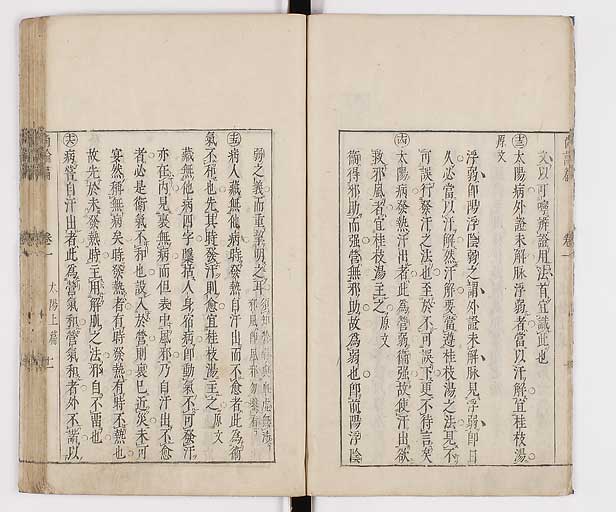 文以叮嚀辨證用法首宜識此也
十三 太陽病外證未解脉浮弱者當以汗解宜桂枝湯
原文
浮弱即陽浮陰弱之謂外證未解脉見浮弱即日
久必當以汗解然汗解要當遵桂枝湯之法見不
可誤行發汗之法也至於不可誤下更不待言矣
十四 太陽病發熱汗出者此為營弱衛强故使汗出欲
救邪風者宜桂枝湯主之 原文
衛得邪助而强營無邪助故為弱也即前陽浮陰
弱之義而重挈明之耳
十五 病人藏無他病時發熱自汗出而不愈者此為衛
氣不和也先其時發汗則愈宜桂枝湯主之 原文
藏無他病四字隱括人身宿病即動氣不可發汗
亦在內見裏無病而但表中風邪乃自汗出不愈
者必是衛氣不和也設入於營則裏已近災未可
宴然稱無病矣時發熱者有時發熱有時不熱也
故先於未發熱時主用解肌之法邪自不留也
十六 病嘗自汗出者此為營氣和營氣和者外不諧以
尚論篇 卷一 太陽上篇 十二